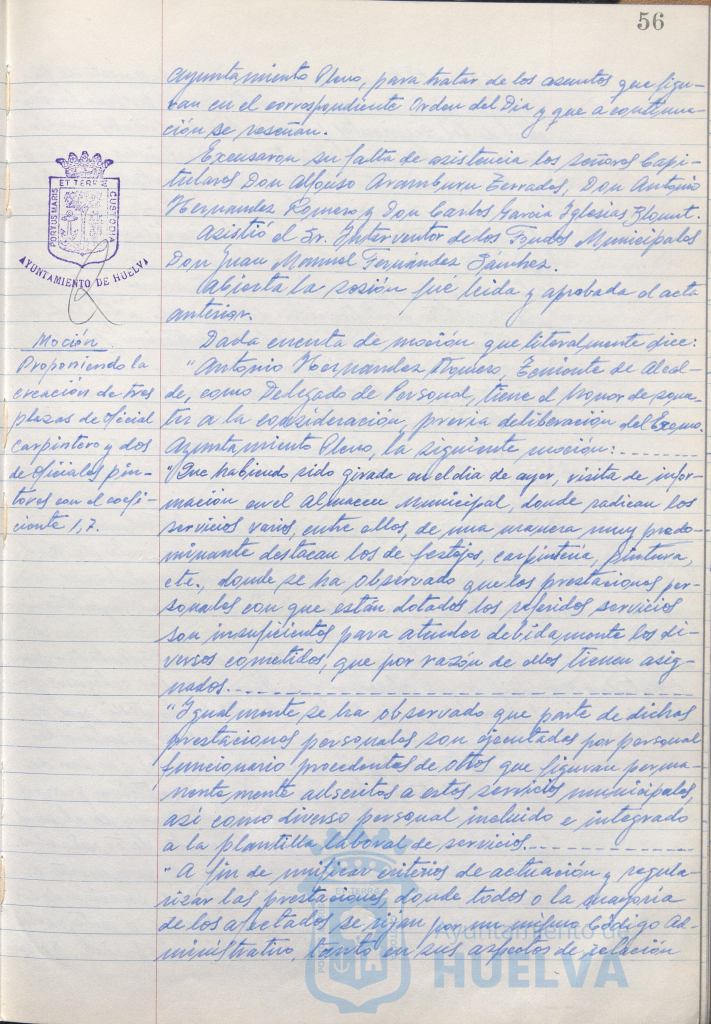 56
Ayuntamiento Pleno, para tratar de los asuntos que figu-
ran en el correspondiente Orden del Dia y que a continua-
ción se reseñan.
Excusaron su falta de asistencia los señores Capi-
tulares Don Alfonso Aramburu Terrades, Don Antonio
Hernandez Romero y Don Carlos Garcia Iglesias Blount.
Asistió el Sr. Interventor de los Fondos Municipales
Don Juan Manuel Fernández Sánchez.
Abierta la sesión fué leida y aprobada el acta
anterior.
PORTUS MARIS ET TERRÆ CUSTODIA
AYUNTAMIENTO DE HUELVA
Moción
Proponiendo la
creación de tres
plazas de Oficial
carpintero y dos
de Oficiales pin-
tores con el coefi-
ciente 1,7.
Dada cuenta de moción que literalmente dice:
"Antonio Hernandez Romero, Teniente de Alcal-
de, como Delegado de Personal, tiene el honor de some-
ter a la consideración, previa deliberación del Excmo.
Ayuntamiento Pleno, la siguiente moción:
"Que habiendo sido girada en el dia de ayer, visita de infor-
mación en el Almacen Municipal, donde radican los
servicios varios, entre ellos, de una manera muy predo-
minante destacan los de festejos, carpinteria, pintura,
etc., donde se ha observado que las prestaciones per-
sonales con que están dotados los referidos servicios
son insuficientes para atender debidamente los di-
versos cometidos, que por razón de ellos tienen asig-
nados.
"Igualmente se ha observado que parte de dichas
prestaciones personales son ejecutadas por personal
funcionario procedentes de otros que figuran perma-
nentemente adscritos a estos servicios municipales,
así como diverso personal incluido e integrado
a la plantilla laboral de servicios.
"A fin de unificar criterios de actuación y regula-
rizar las prestaciones, donde todos o la mayoria
de los afectados se rijan por un mismo Código Ad-
ministrativo, tanto en sus aspectos de relación
Ayuntamiento de
HUELVA